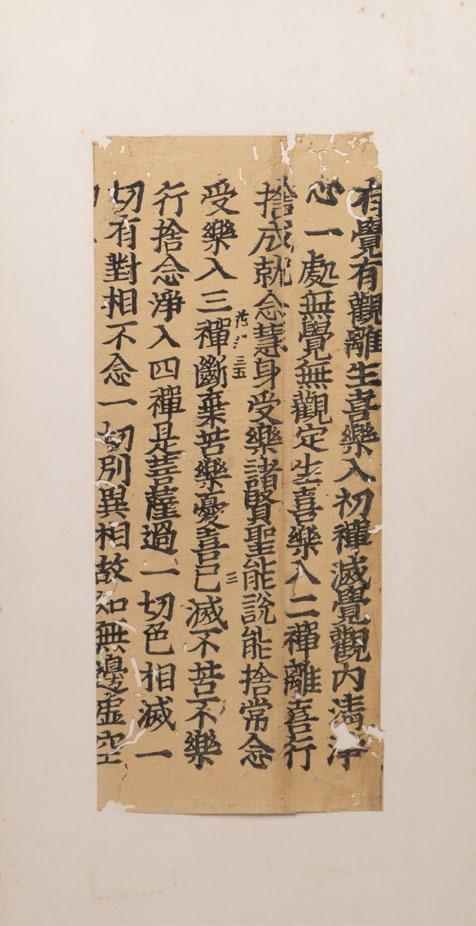 有覺有觀離生喜樂入初禪滅覺觀內清淨
心一處無覺無觀定生喜樂入二禪離喜行
捨成就念慧身受樂諸賢聖能說能捨常念
三五
三
受樂入三禪斷棄苦樂憂喜已滅不苦不樂
行捨念淨入四禪是菩薩過一切色相滅一
切有對相不念一切別異相故知無邊虛空